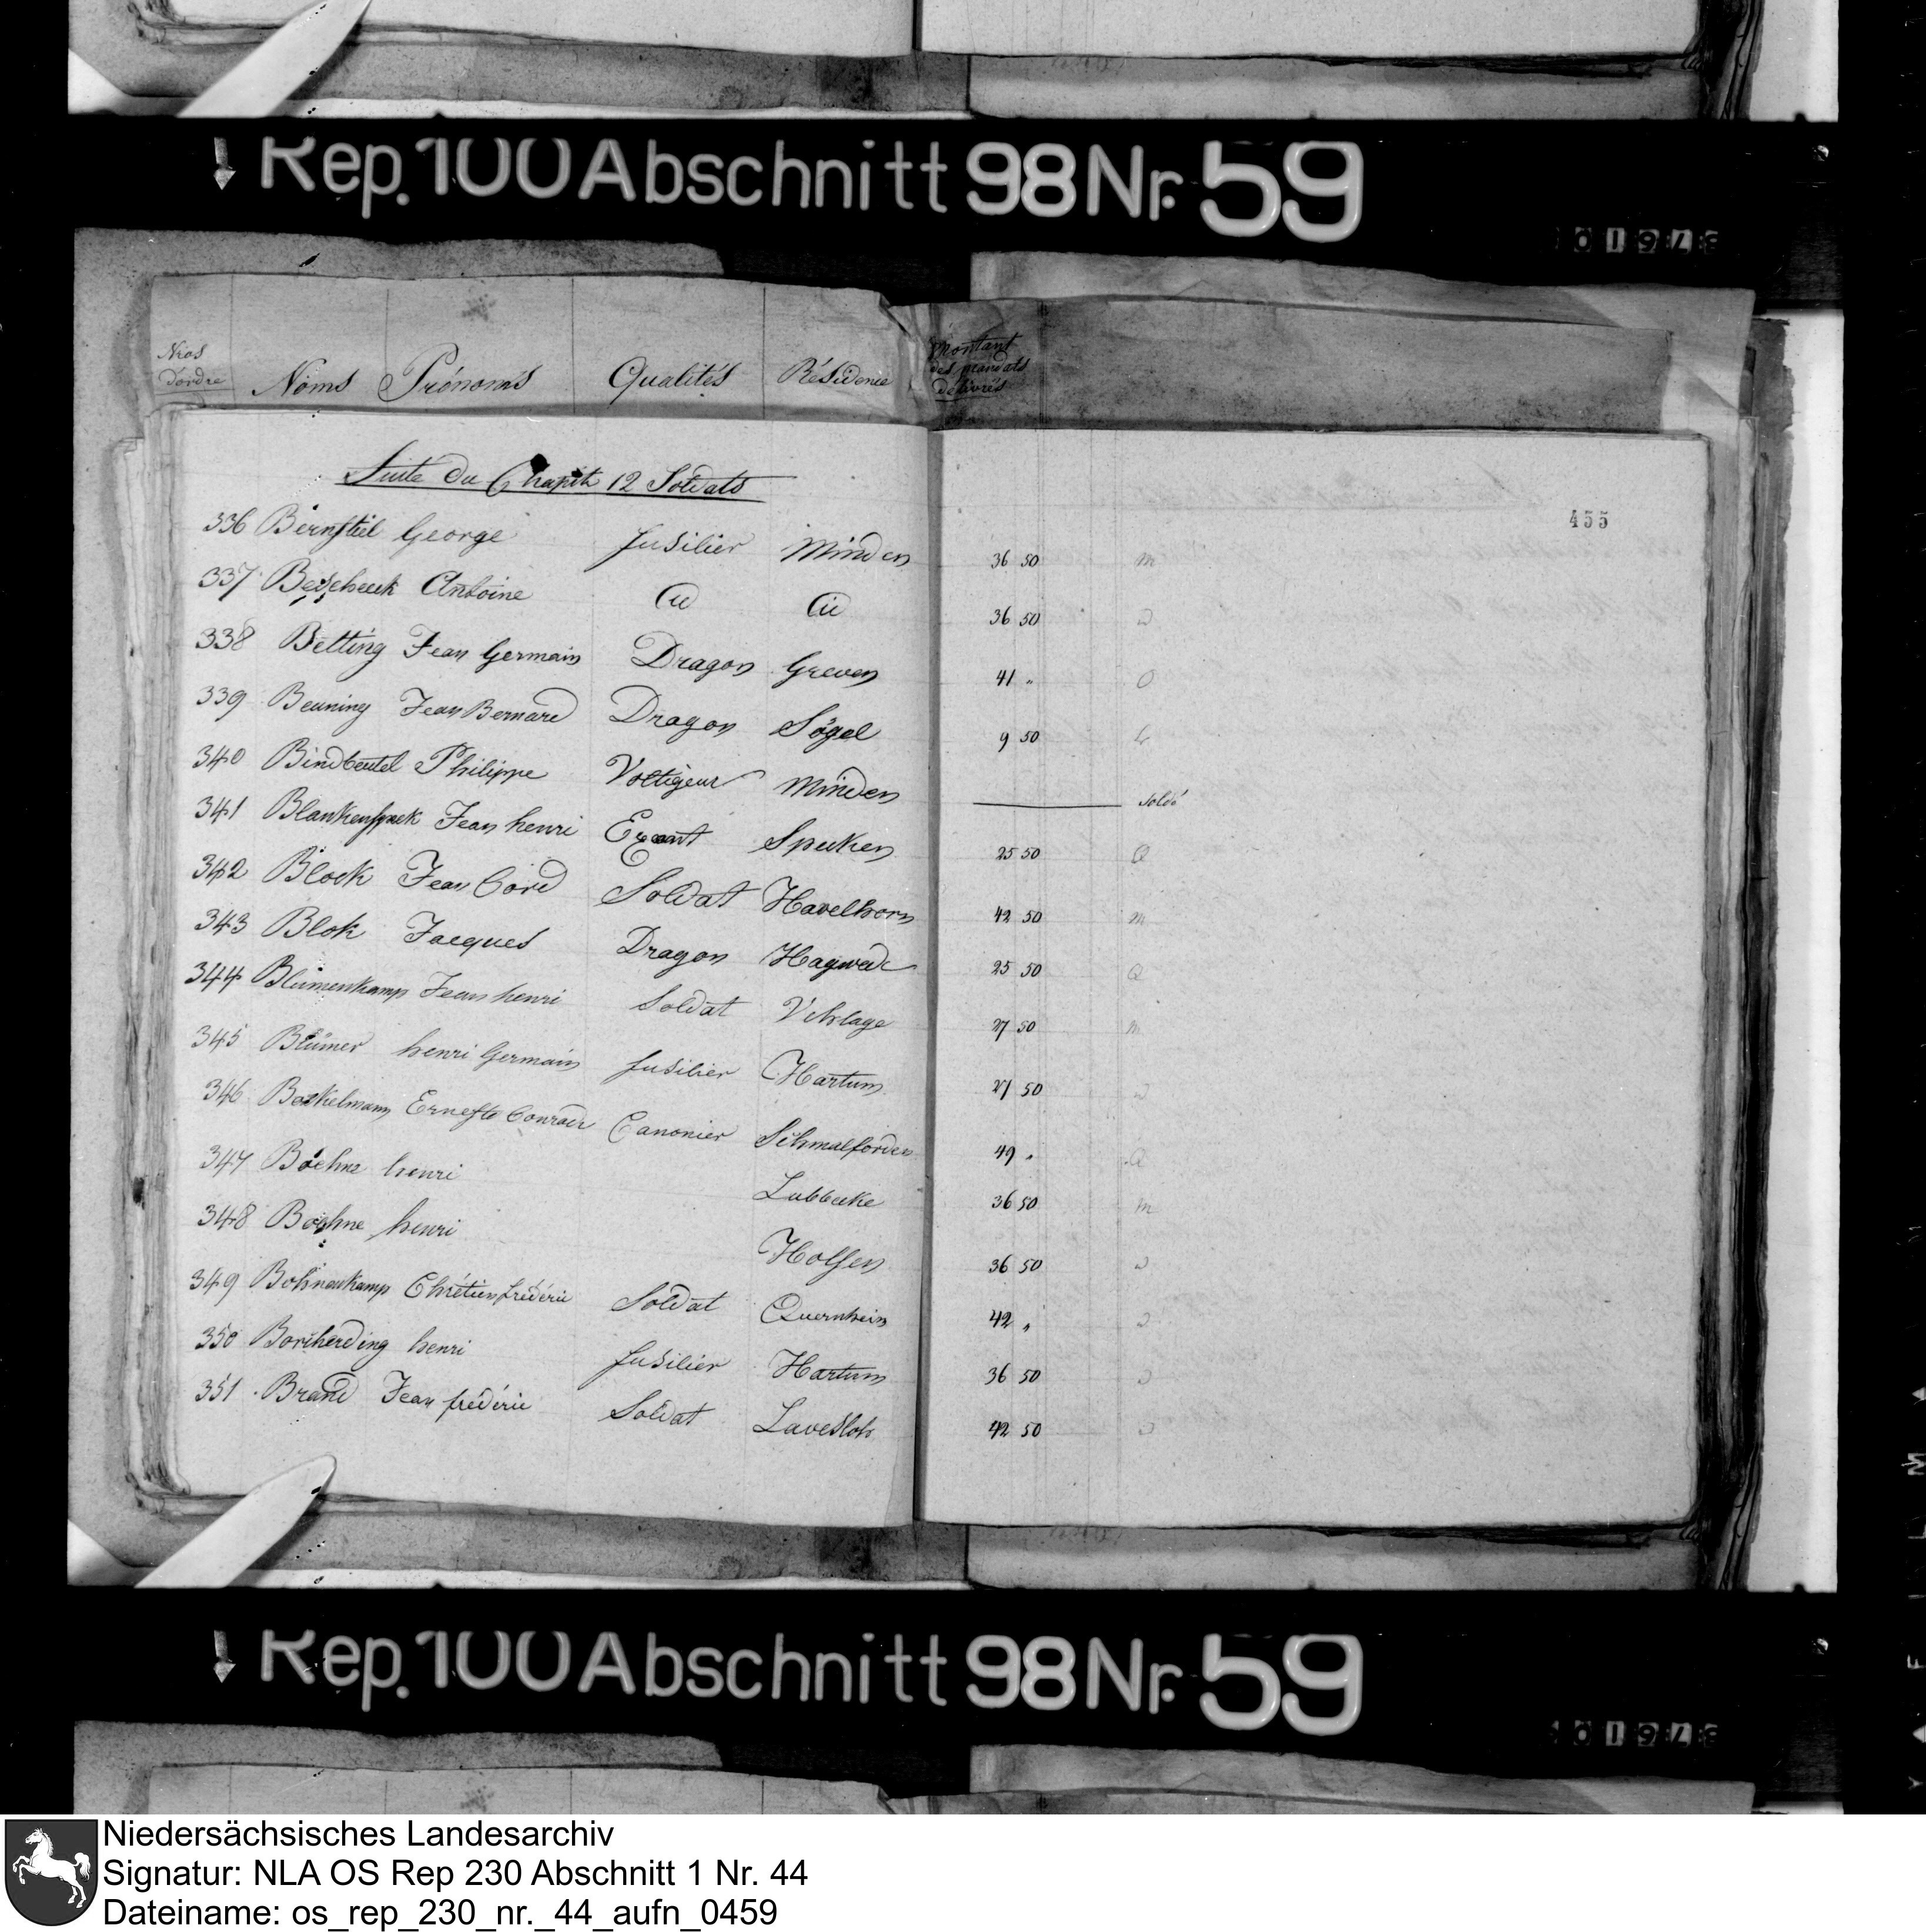 Rep. 100 Abschnitt 98 Nr. 59
Nros d'ordre Noms Prénoms Qualités Résidence Montant des mandats délivrés
455
Suite du Chapit 12 Soldats
336 Bernstiel George fusilier Minden 36 50 m
337 Antoine 36 50
338 Betting Jean Germain Dragon Greven 41 " O
339 Beuning Jean Bernard Dragon Sögel 9 50 L
340 Bindbeutel Philippe Voltigeur Minden — Soldé
341 Jean henri Specken 25 50 Q
342 Block Jean Cord Soldat Havelhorn 42 50 m
343 Blok Jacques Dragon Hagwede 25 50 Q
344 Blumenkamp Jean henri Soldat Vehlage 27 50 m
345 Blümer henri Germain fusilier Hartum 27 50
346 Erneste Conrad Canonier Schmalförden 49 " Q
347 Boehne henri Lubbecke 36 50 m
348 Boehne henri Holsen 36 50
349 Bohnenkamp Chrétien fréderic Soldat Quernheim 42 "
350 Borcherding henri fusilier Hartum 36 50
351 Brand Jean fréderic Soldat Lavesloh 42 50
Rep. 100 Abschnitt 98 Nr. 59
Niedersächsisches Landesarchiv
Signatur: NLA OS Rep 230 Abschnitt 1 Nr. 44
Dateiname: os_rep_230_nr._44_aufn_0459